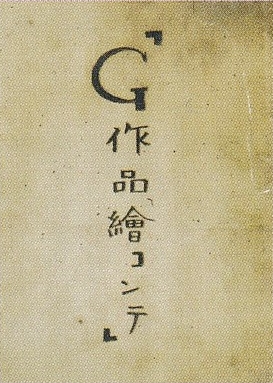 「G作品繪コンテ」